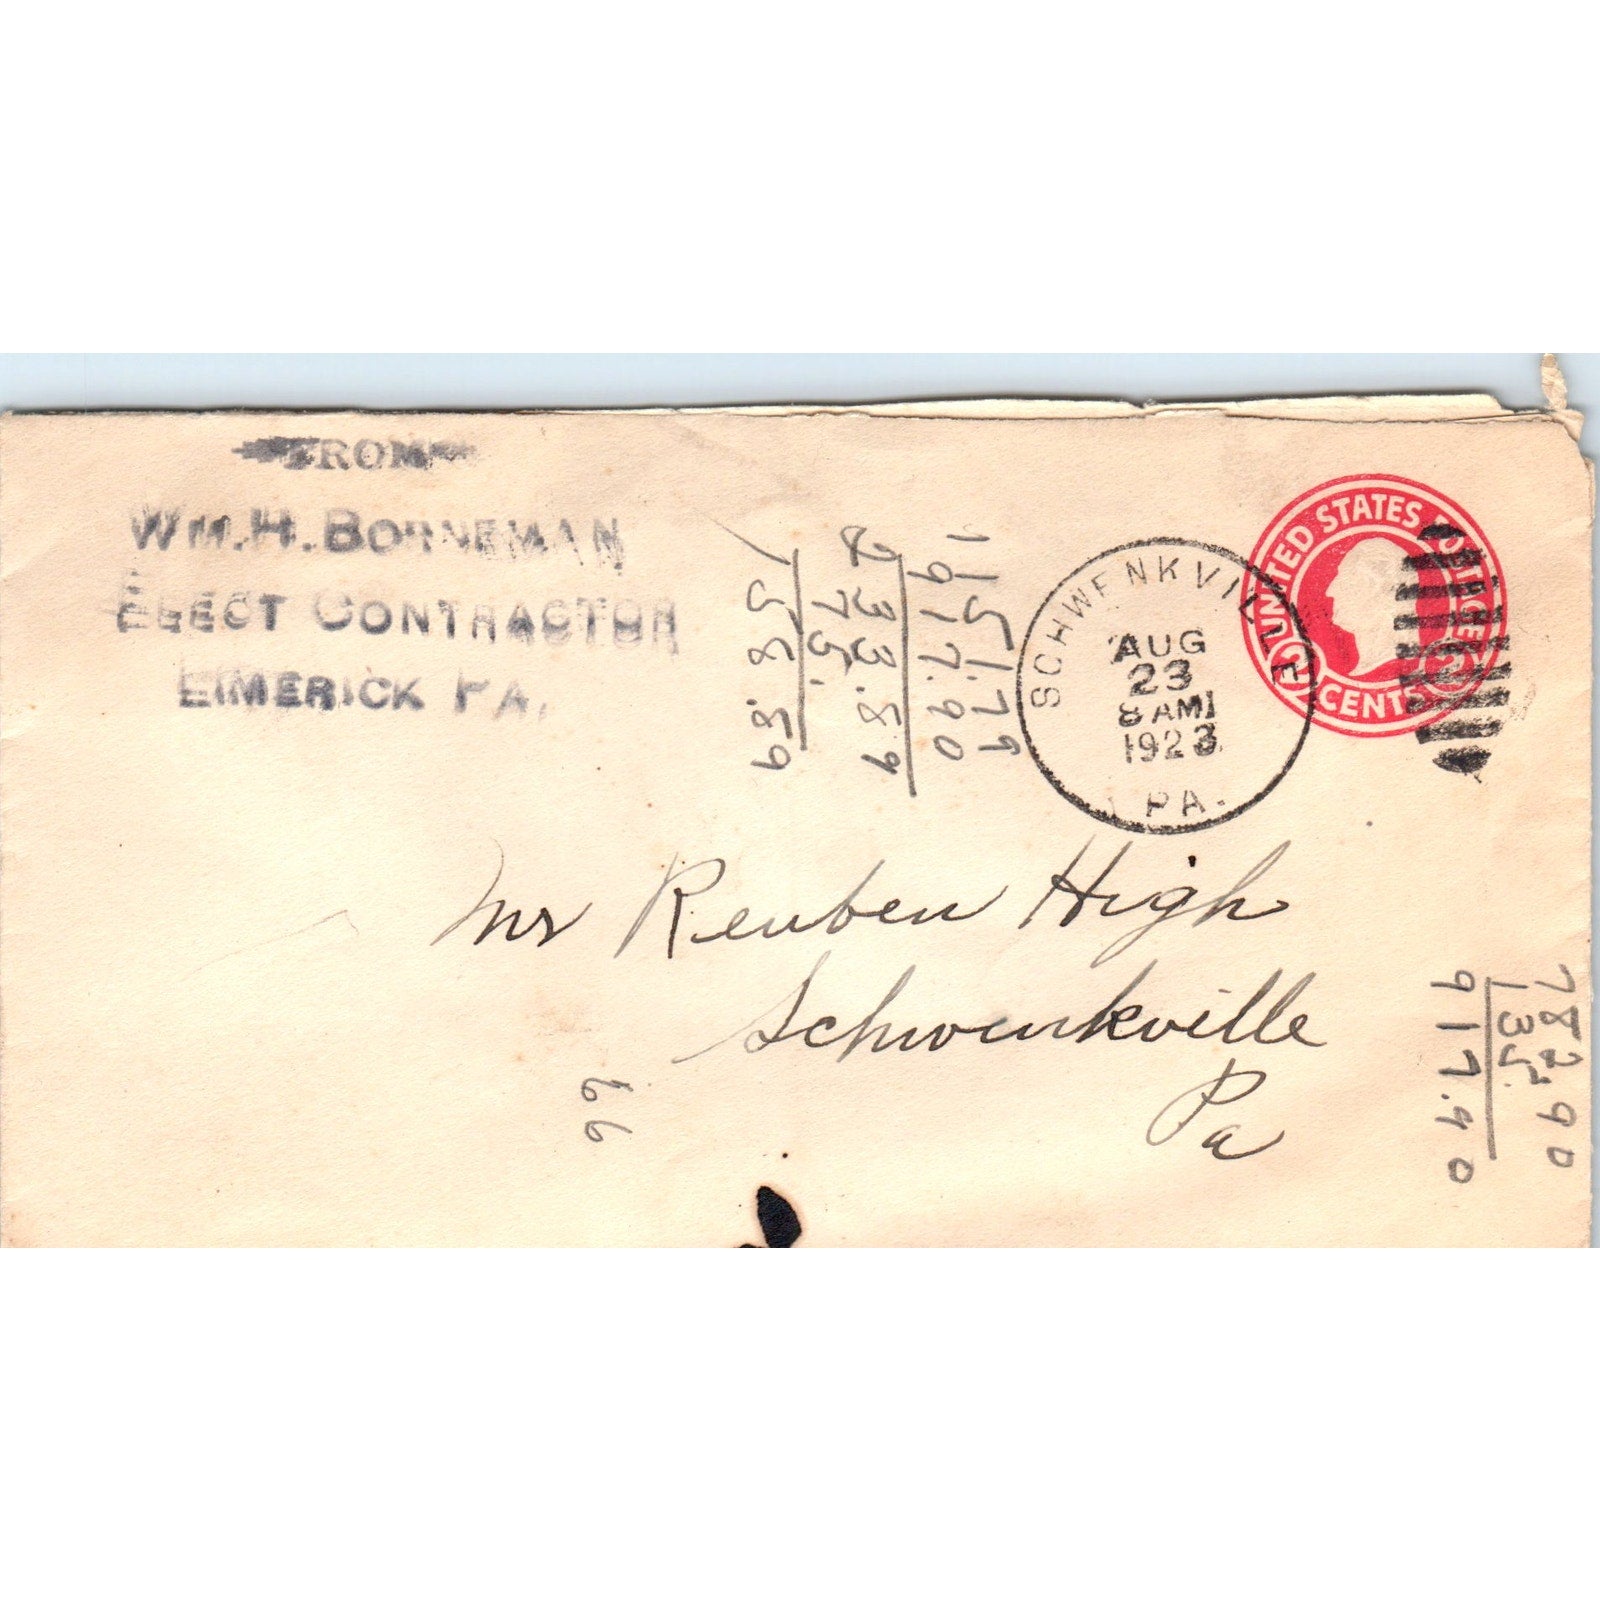 FROM
WM. H. BORNEMAN
ELECT CONTRACTOR
LIMERICK PA.
UNITED STATES POSTAGE
2 CENTS 2
SCHWENKVILLE
AUG
23
8 AM
1923
PA.
233.89
75.
158.89
Mr Reuben High
Schwenkville
Pa
782.90
135.
917.90